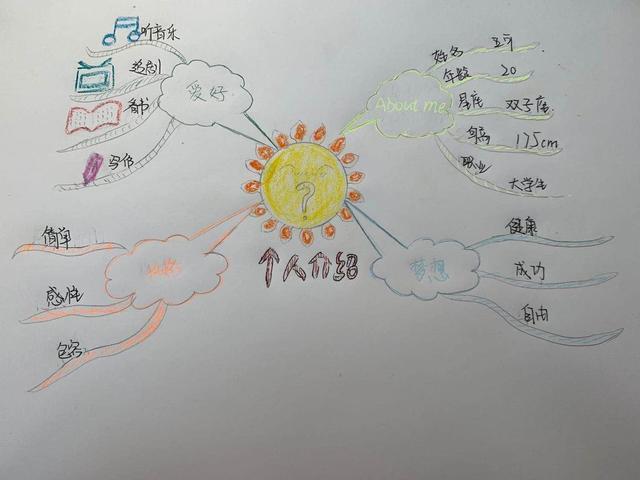 听音乐
追剧
看书
写作
爱好
About me
姓名
年龄 20
星座 双子座
身高 175cm
职业 大学生
?
个人介绍
性格
简单
感性
包容
梦想
健康
成功
自由